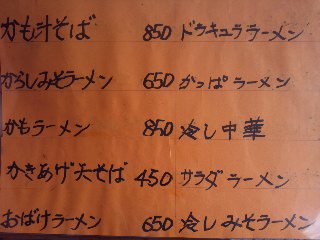 かも汁そば 850 ドラキュララーメン
からしみそラーメン 650 かっぱラーメン
かもラーメン 850 冷し中華
かきあげ天そば 450 サラダラーメン
おばけラーメン 650 冷しみそラーメン